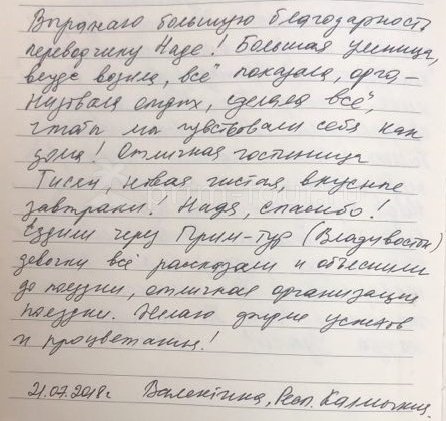 Выражаю большую благодарность
переводчику Наде! Большая умница,
везде возила, всё показала, орга-
низовала отдых, сделала всё,
чтобы мы чувствовали себя как
дома! Отличная гостиница
новая чистая, вкусные
завтраки! Надя, спасибо!
Ездили через Прим-Тур (Владивосток)
девочки всё рассказали и объяснили
до поездки, отличная организация
поездки. Желаю успехов
и процветания!
21.07.2018г. Валентина, Респ. Калмыкия.